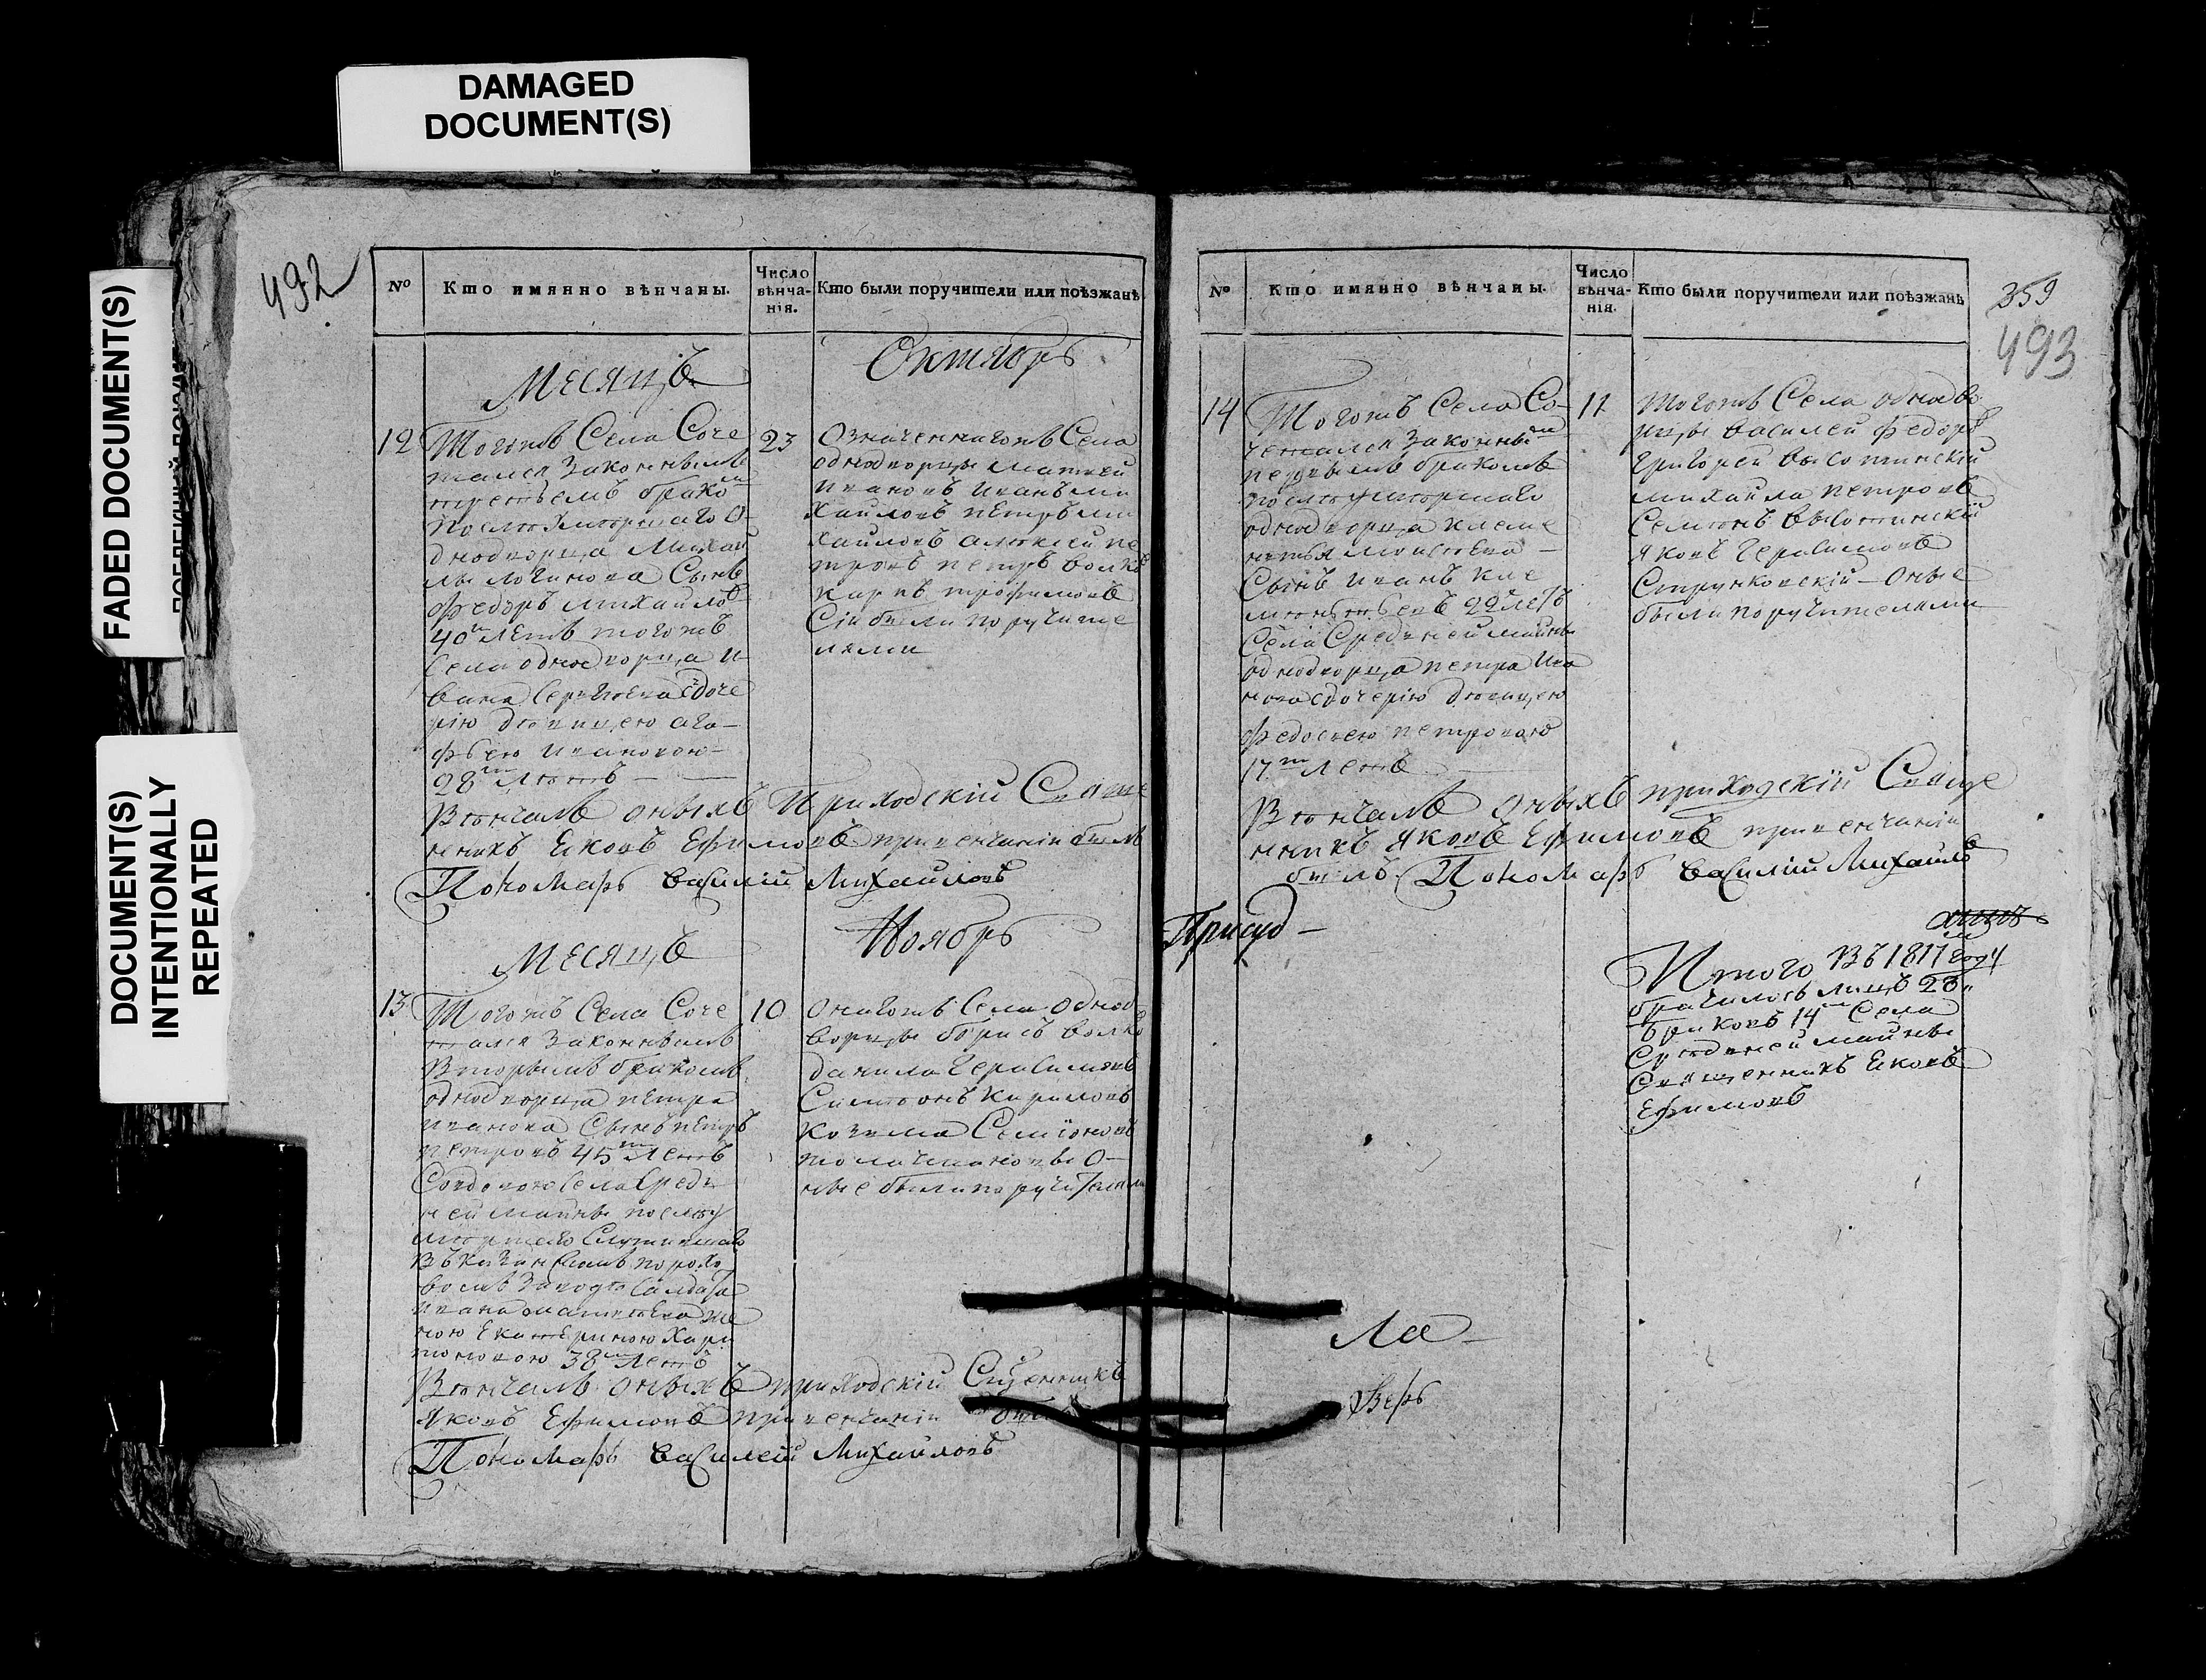 DAMAGED
DOCUMENT(S)
FADED DOCUMENT(S)
DOCUMENT(S)
INTENTIONALLY
REPEATED
492
№
Кто имянно вѣнчаны.
Число
вѣнча-
нія.
Кто были поручители или поѣзжанѣ
Месяцъ
Октябрь
12
Тогожъ Села Соче
тался Законнымъ
третьемъ брако м
дноворца
Сынъ
Федоръ Михайловъ
40 летъ тогожъ
Села однодворца И
вана Сергѣева Здоче
рію дѣвицею Ага-
фьею Ивановою-
28 лѣтъ
23
Означеннагожъ Села
однодворцы Матвей
Ивановъ Иванъ Ми
хайловъ Петръ Ми
хайловъ Алѣксей Пе
тровъ Петръ Волко
Карпъ Трофимовъ
Сіи были поручите
лями
Вѣнчалъ оныхъ Приходскій Свяще
нникъ Яковъ Ефимовъ при венчаніи былъ
Пономарь Василій Михайловъ
Месяцъ
Ноябрь
13
Тогожъ Села Соче
тался Законнымъ
Вторымъ бракомъ
однодворца Петра
Иванова Сынъ Петръ
Петровъ 45 летъ
Совдовою Села Сред
ней Майны
Въ Казанскомъ порохо
вомъ Заводѣ Салдата
Ивана Матвѣева же
ною Екатериною Хари
тоновою 38 летъ
10
Онагожъ Села Однод
ворцы Борисъ Волко
Данила Герасимовъ
Симеонъ Кириловъ
Козима Семіоновъ
О-
ные были поручители
Вѣнчалъ оныхъ приходскій Сщенникъ
Яковъ Ефимовъ при венчаніи
Пономарь Василей Михайловъ
359
493
№
Кто имянно вѣнчаны.
Число
вѣнча-
нія.
Кто были поручители или поѣзжанѣ
14
Тогожъ Села Со-
четался Законным
первымъ бракомъ
однодворца Клеме
нтья Моисѣева
Сынъ Иванъ Кле
мѣнтьевъ 22 летъ
Села Средней Майны
однодворца Петра Ива
нова здочерію дѣвицею
Федосьею Петровою
17 летъ
11
Тогожъ Села однодво
рцы Василей Федоро
Григорей Высотинскій
Михайла Петровъ
Семіонъ Высотинскій
Яковъ Герасимовъ
Струнковскій - Оные
были поручителями
Вѣнчалъ оныхъ приходскій Свяще
нникъ Яковъ Ефимовъ при венчаніи
былъ Пономарь Василий Михайло
Присуд-
Итого Въ 1817 году
бракилось лицъ 28
браковъ 14 Села
Средней Майны
Священникъ Яковъ
Ефимовъ
Ла-
Верь